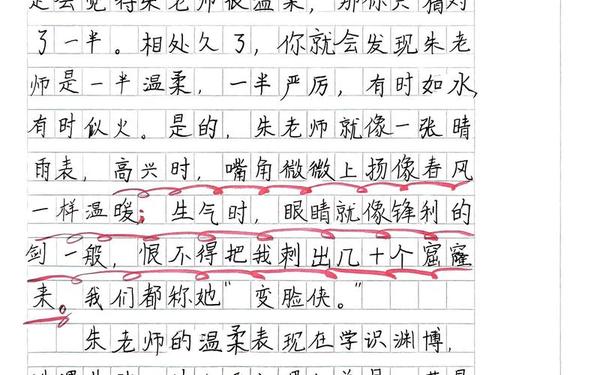 定会觉得朱老师很温柔，那你只猜对
了一半。相处久了，你就会发现朱老
师是一半温柔，一半严厉，有时如水，
有时似火。是的，朱老师就像一张晴
雨表，高兴时，嘴角微微上扬像春风
一样温暖；生气时，眼睛就像锋利的
剑一般，恨不得把我刺出几十个窟窿
来。我们都称她“变脸侠。”
朱老师的温柔表现在学识渊博，